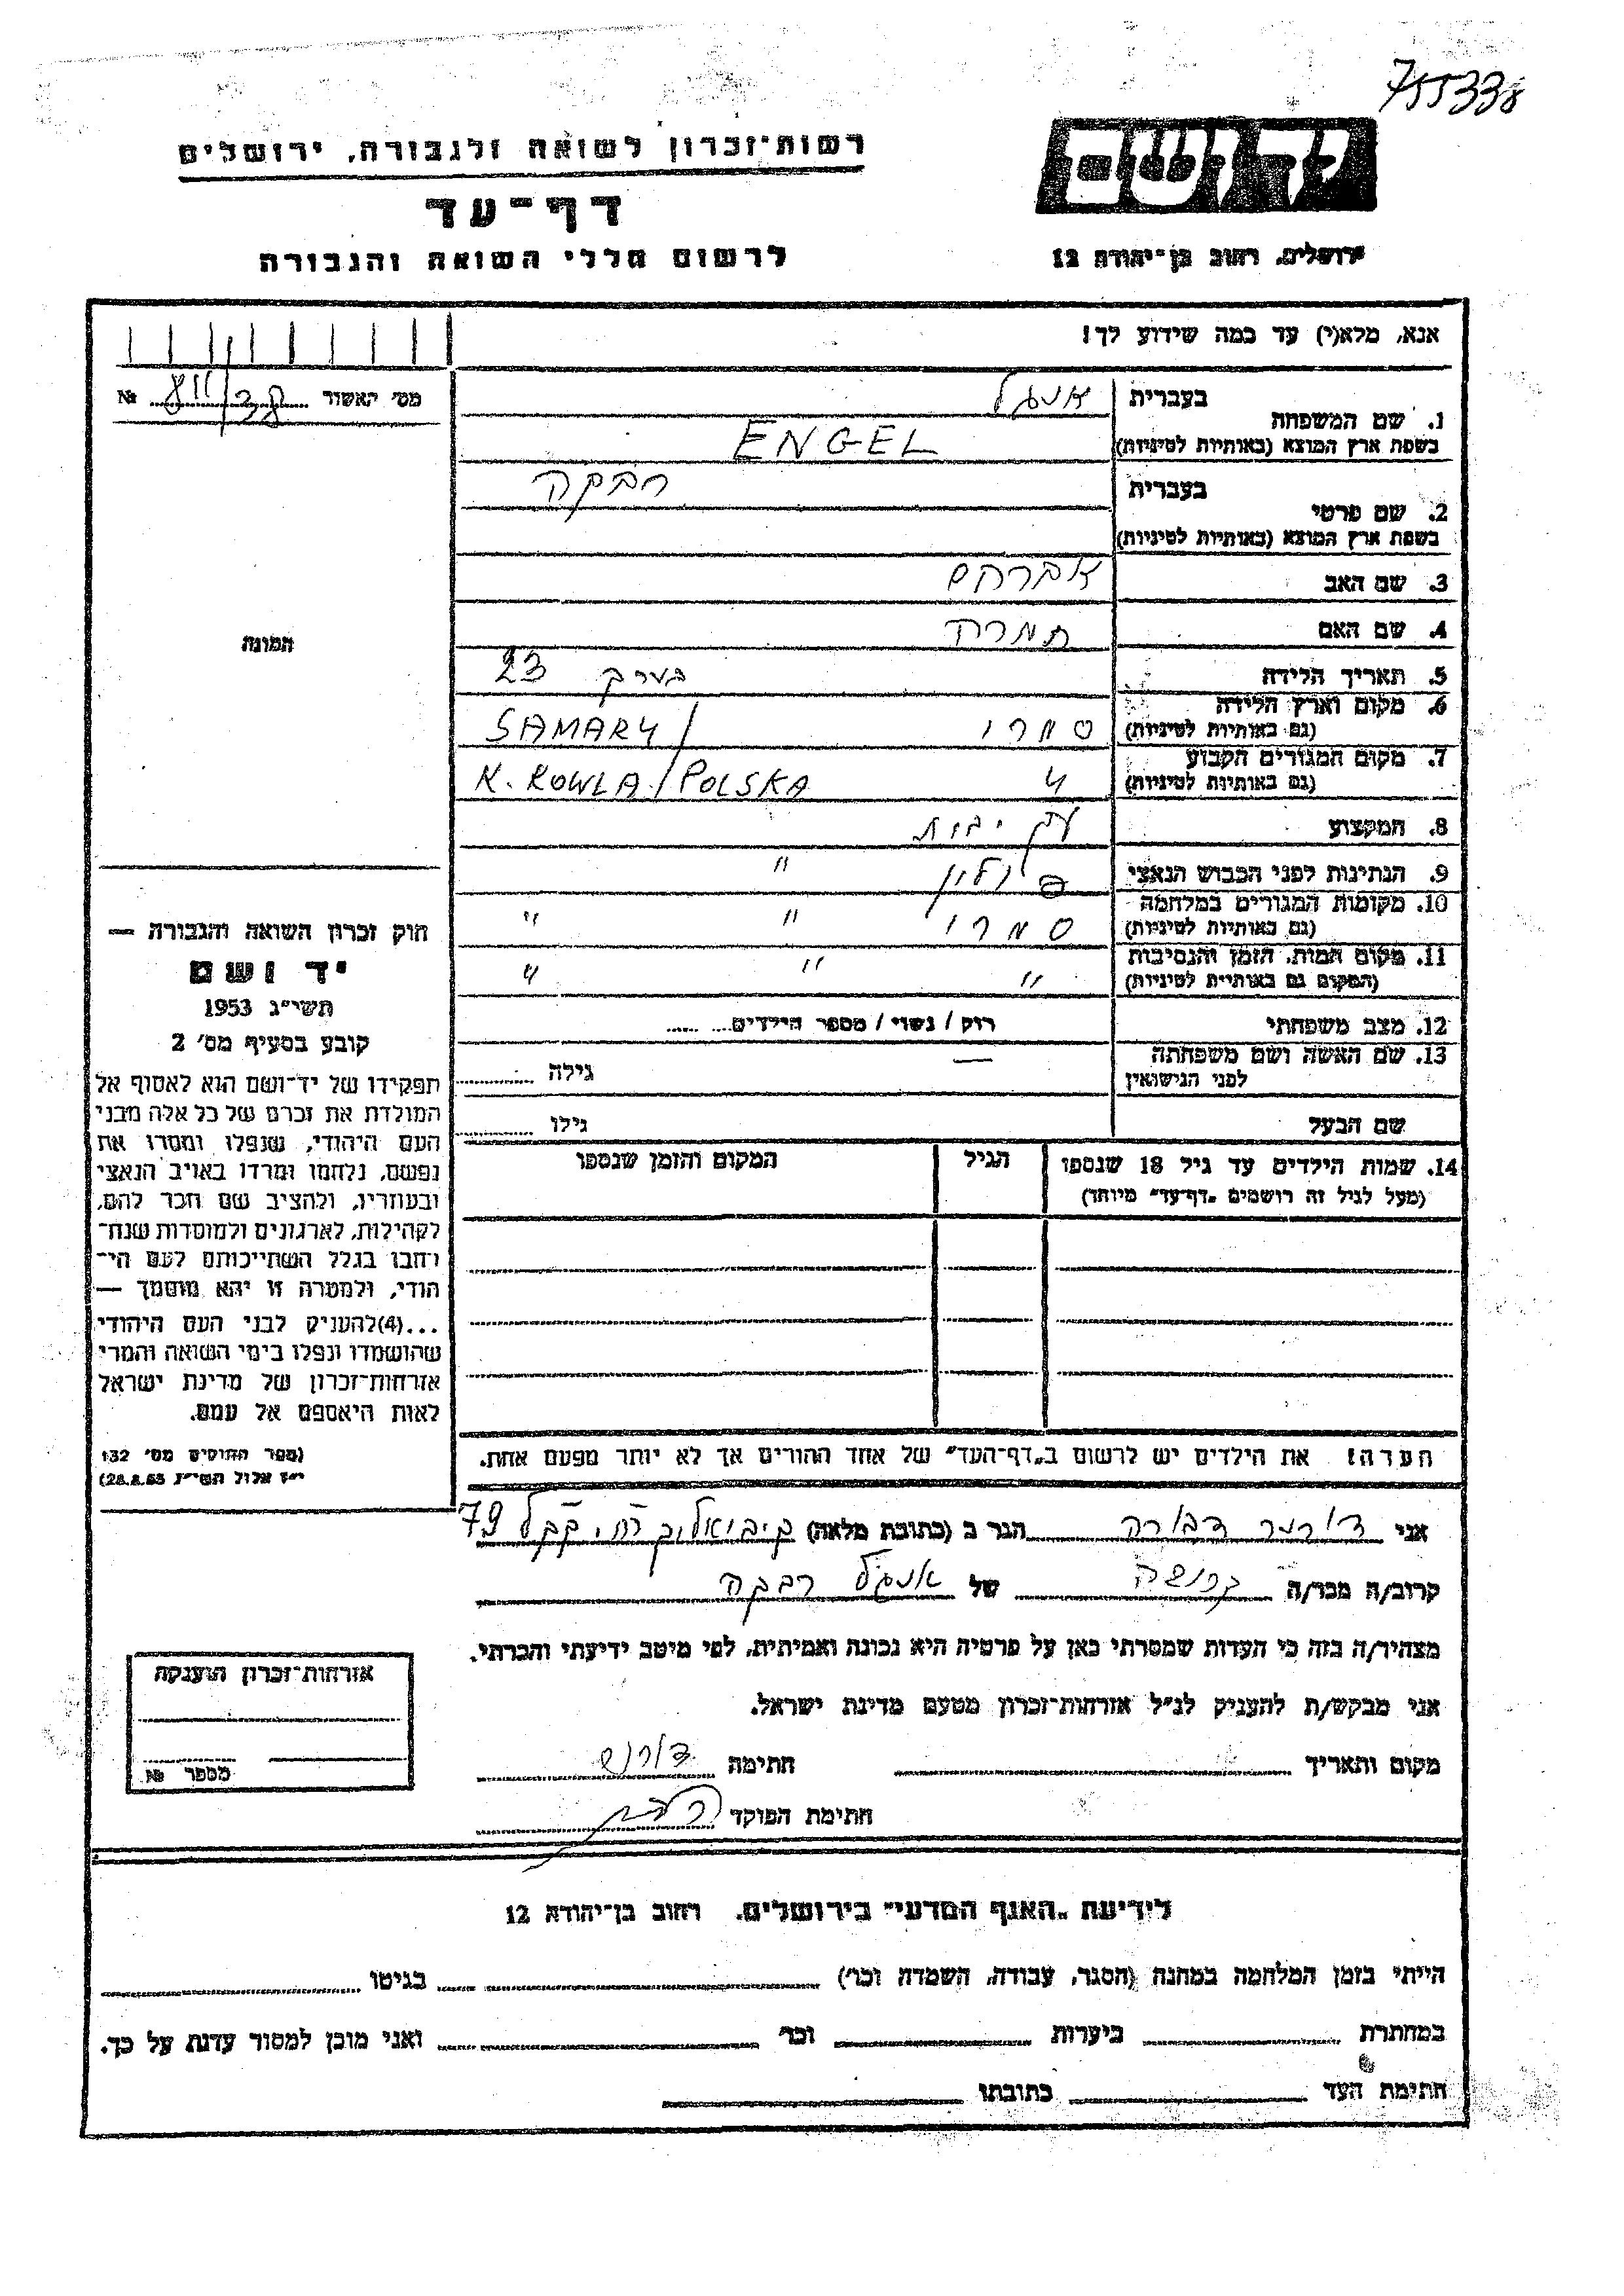 755338
יד ושם
ירושלים, רחוב בן־יהודה 12
רשות־זכרון לשואה ולגבורה, ירושלים
דף־עד
לרשום חללי השואה והגבורה
אנא, מלא(י) עד כמה שידוע לך!
מס׳ האשור №
1. שם המשפחה
בעברית אנגל
בשפת ארץ המוצא (באותיות לטיניות) ENGEL
2. שם פרטי
בעברית רבקה
בשפת ארץ המוצא (באותיות לטיניות)
3. שם האב אברהם
4. שם האם תמרה
5. תאריך הלידה בערך 23
6. מקום וארץ הלידה
(גם באותיות לטיניות) סמרי SAMARY /
7. מקום המגורים הקבוע
(גם באותיות לטיניות) " K. KOWLA / POLSKA
8. המקצוע
9. הנתינות לפני הכבוש הנאצי פולין "
10. מקומות המגורים במלחמה
(גם באותיות לטיניות) סמרי " "
11. מקום המות, הזמן והנסיבות
(המקום גם באותיות לטיניות) " " "
12. מצב משפחתי רוק / נשוי / מספר הילדים
13. שם האשה ושם משפחתה
לפני הנישואין — גילה
שם הבעל גילו
14. שמות הילדים עד גיל 18 שנספו
(מעל לגיל זה רושמים „דף־עד״ מיוחד)
הגיל
המקום והזמן שנספו
הערה! את הילדים יש לרשום ב„דף־העד״ של אחד ההורים אך לא יותר מפעם אחת.
התמונה
חוק זכרון השואה והגבורה —
יד ושם
תשי״ג 1953
קובע בסעיף מס׳ 2
תפקידו של יד־ושם הוא לאסוף אל
המולדת את זכרם של כל אלה מבני
העם היהודי, שנפלו ומסרו את
נפשם, נלחמו ומרדו באויב הנאצי
ובעוזריו, ולהציב שם וזכר להם,
לקהילות, לארגונים ולמוסדות שנח־
רבו בגלל השתייכותם לעם הי־
הודי, ולמטרה זו יהא מוסמך —
...(4)להעניק לבני העם היהודי
שהושמדו ונפלו בימי השואה והמרי
אזרחות־זכרון של מדינת ישראל
לאות היאספם אל עמם.
(ספר החוקים מס׳ 132
י״ז אלול תשי״ג 28.8.53)
אני דורנר דבורה הגר ב (כתובת מלאה) 79
קרוב/ה מכר/ה של אנגל רבקה
מצהיר/ה בזה כי העדות שמסרתי כאן על פרטיה היא נכונה ואמיתית, לפי מיטב ידיעתי והכרתי.
אני מבקש/ת להעניק לנ״ל אזרחות־זכרון מטעם מדינת ישראל.
מקום ותאריך חתימה
חתימת הפוקד
אזרחות־זכרון הוענקה
מספר №
לידיעת „האגף המדעי״ בירושלים, רחוב בן־יהודה 12
הייתי בזמן המלחמה במחנה (הסגר, עבודה, השמדה וכו׳) בגיטו
במחתרת ביערות וכו׳ ואני מוכן למסור עדות על כך.
חתימת העד כתובתו